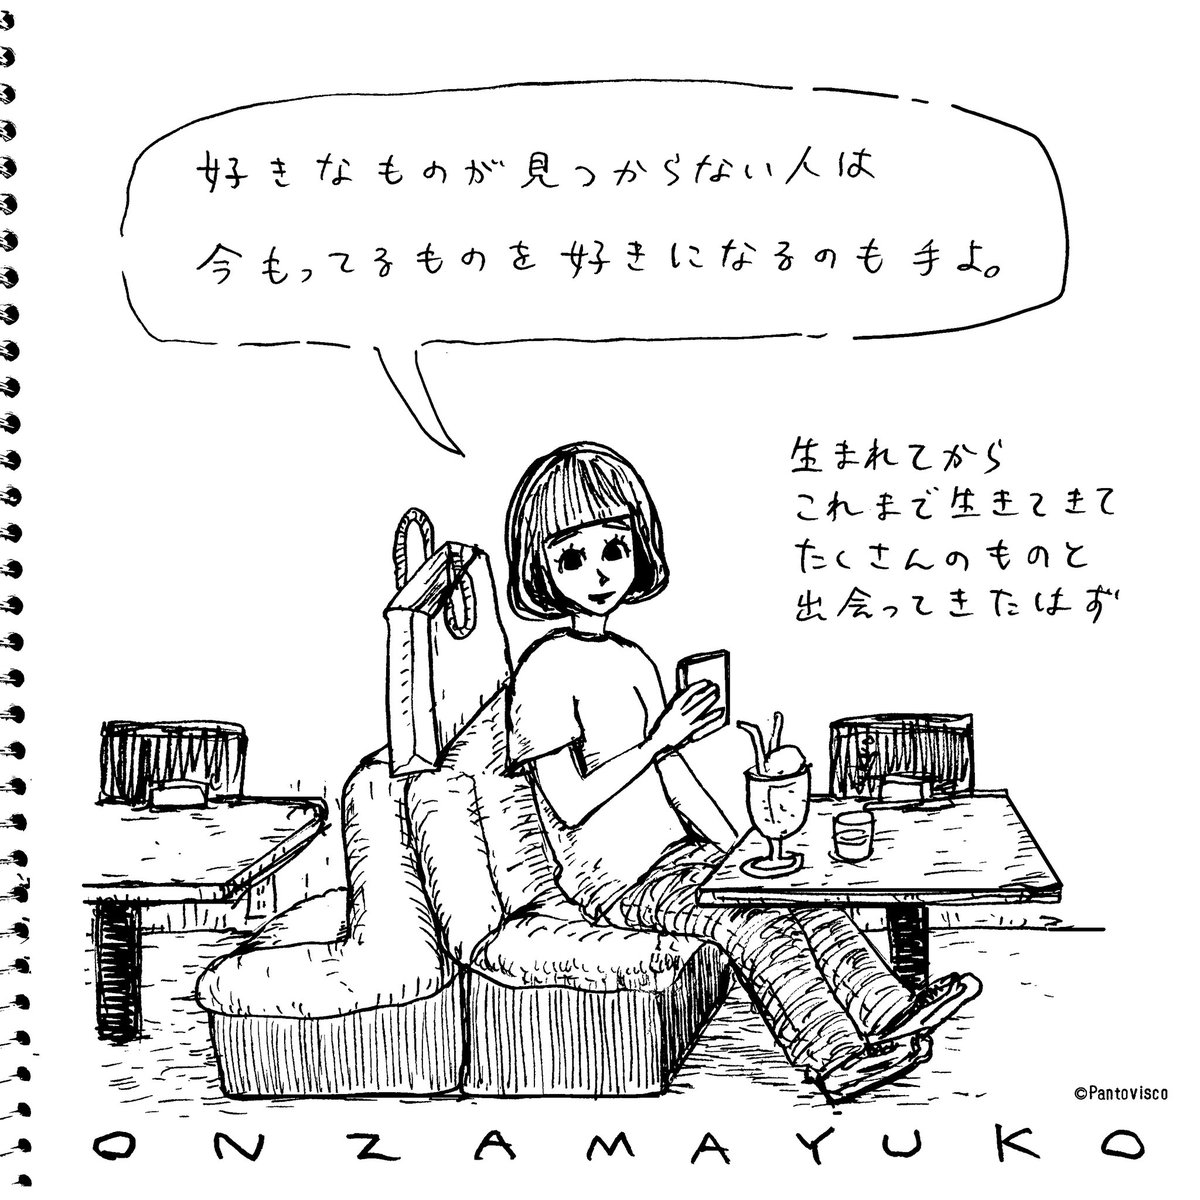 好きなものが見つからない人は
今もってるものを好きになるのも手よ。
生まれてから
これまで生きてきて
たくさんのものと
出会ってきたはず
©Pantovisco
ONZAMAYUKO